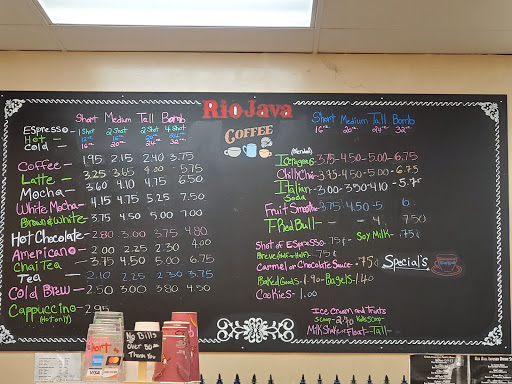 Rio Java
COFFEE
Short Medium Tall Bomb
Espresso - 1 Shot 2 Shot 2 Shot 4 Shot
Hot - 12oz 16oz 20oz 24oz
Cold - 16oz 20oz 24oz 32oz
Coffee - 1.95 2.15 2.40 3.75
Latte - 3.25 3.65 4.00 5.75
Mocha - 3.60 4.10 4.75 6.50
White Mocha - 4.15 4.75 5.25 7.50
Brown & White - 3.75 4.50 5.00 7.00
Hot Chocolate - 2.80 3.00 3.75 4.80
Americano - 2.00 2.25 2.30 4.00
Chai Tea - 3.75 4.50 5.00 6.75
Tea - 2.10 2.25 2.30 3.75
Cold Brew - 2.50 3.00 3.80 4.50
Cappuccino - 2.95
(Hot only)
Short Medium Tall Bomb
16oz 20oz 24oz 32oz
(Blended)
Icergeous 3.75 - 4.50 - 5.00 - 6.75
Chilly Chai - 3.75 - 4.50 - 5.00 - 6.75
Italian Soda - 3.00 - 3.50 - 4.10 - 5.75
Fruit Smoothie 3.75 4.50 - 5
Red Bull -
Shot of Espresso - 75¢ - Soy Milk - .75¢
Breve (Half n Half) - 75¢
Carmel or Chocolate Sauce - .75¢
Special's
Baked Goods - 1.90 - Bagels - 1.40
Cookies - 1.00
Ice cream and treats
Scoop - 2.40 Kids Scoop -
Milk Shake or Float - Tall -
No Bills
Over $20.00
Thank You
VISA